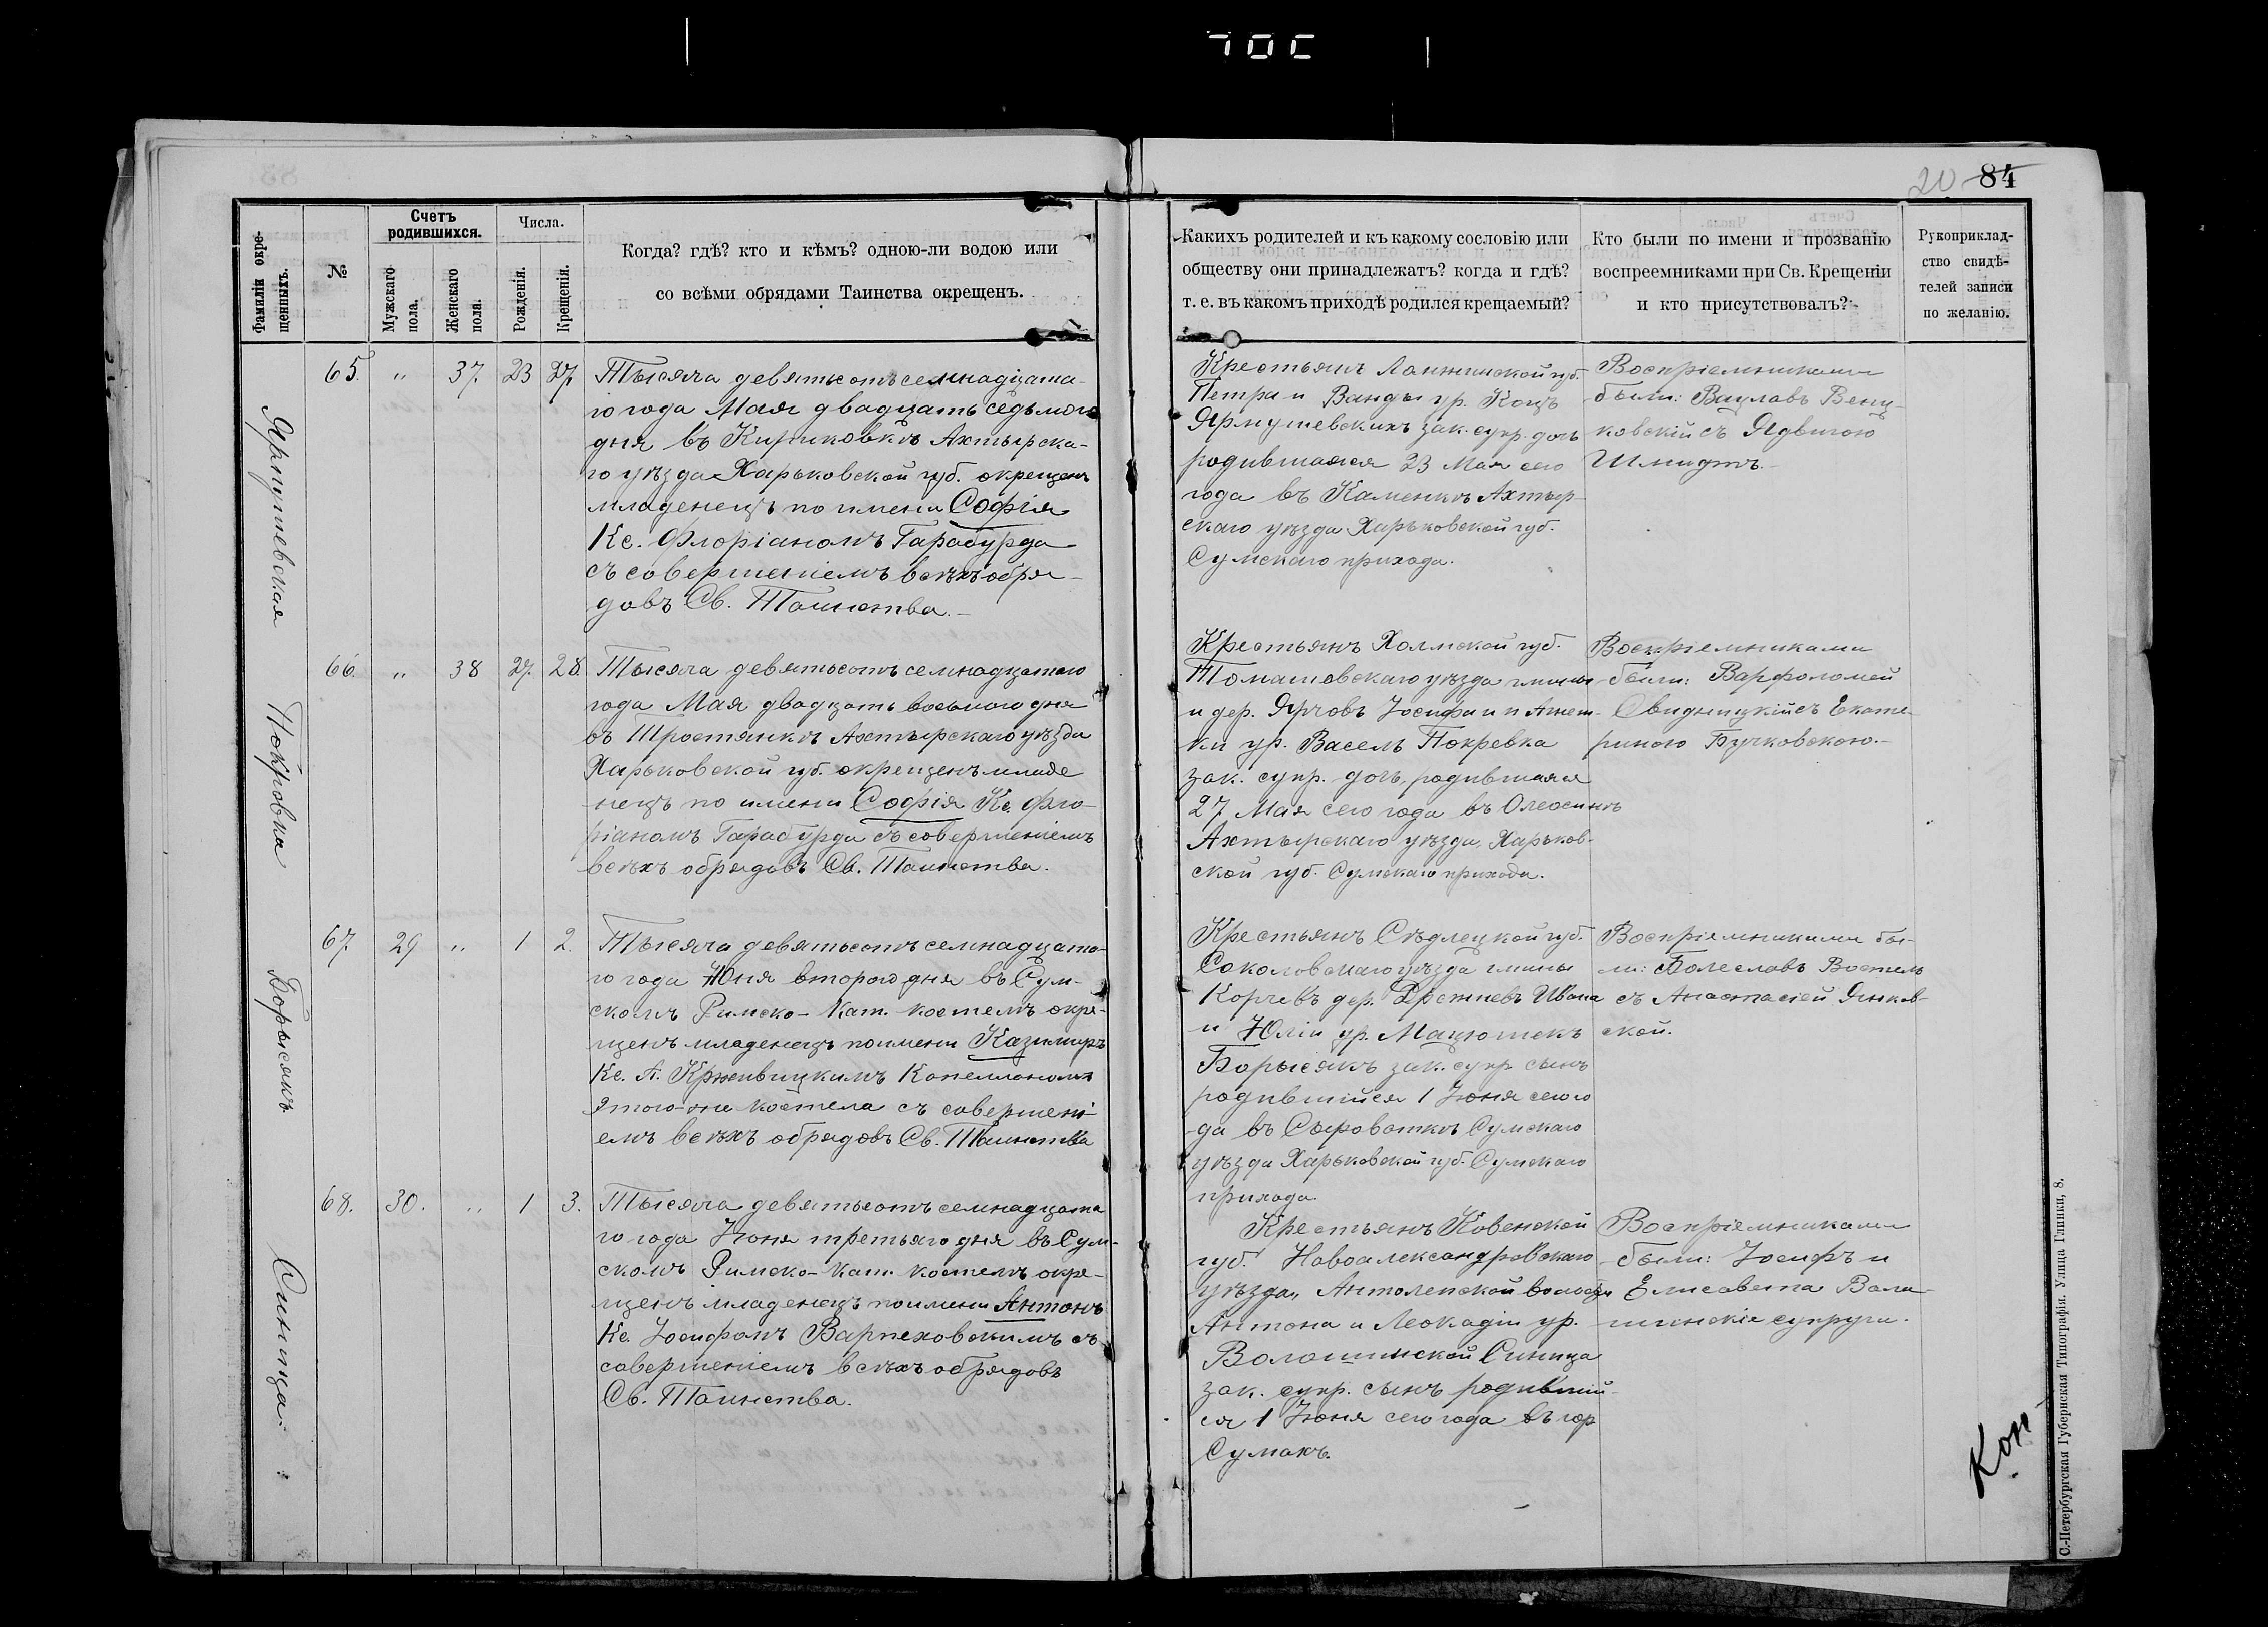 70C
20 84
Фамиліи окрещенныхъ.
№
Счетъ родившихся.
Мужскаго пола.
Женскаго пола.
Числа.
Рожденія.
Крещенія.
Когда? гдѣ? кто и кѣмъ? одною-ли водою или
со всѣми обрядами Таинства окрещенъ.
Какихъ родителей и къ какому сословію или
обществу они принадлежатъ? когда и гдѣ?
т. е. въ какомъ приходѣ родился крещаемый?
Кто были по имени и прозванію
воспреемниками при Св. Крещеніи
и кто присутствовалъ?
Рукоприклад-
ство свидѣ-
телей записи
по желанію.
Ярмушевская
65. " 37. 23 27.
Тысяча девятьсотъ семнадцата-
го года Мая двадцать седьмого
дня въ Кириковкѣ Ахтырска-
го уѣзда Харьковской губ. окрещенъ
младенецъ по имени Софія
Кс. Флоріаномъ Гарабурда
съ совершеніемъ всѣхъ обря-
довъ Св. Таинства.
Крестьянъ губ.
Петра и Ванды ур. Коцъ
Ярмушевскихъ зак. супр. дочь
родившаяся 23 Мая сего
года въ Каменкѣ Ахтыр-
скаго уѣзда Харьковской губ.
Сумскаго прихода.
Воспріемниками
были: Вацлавъ Венц-
ковскій съ Ядвигою
Шмидтъ.
Покровка
66. " 38 27. 28.
Тысяча девятьсотъ семнадцатаго
года Мая двадцать восьмого дня
въ Тростянкѣ Ахтырскаго уѣзда
Харьковской губ. окрещенъ младе
нецъ по имени Софія Кс. Фло-
ріаномъ Гарабурда съ совершеніемъ
всѣхъ обрядовъ Св. Таинства.
Крестьянъ Холмской губ.
Томашовскаго уѣзда гмины
и дер. Ярчовъ Іосифа и Анет-
ки ур. Васель Покревка
зак. супр. дочь, родившаяся
27 Мая сего года въ
Ахтырскаго уѣзда, Харьков-
ской губ. Сумскаго прихода.
Воспріемниками
были: Варфоломей
Свидницкій съ Екате-
риною Бучковскою.
Борысякъ
67. 29 " 1 2.
Тысяча девятьсотъ семнадцата-
го года Юня второго дня въ Сум-
скомъ Римско-Кат. костелѣ окре-
щенъ младенецъ по имени Казимиръ
Кс. А. Крживицкимъ Капелланомъ
этого-же костела съ совершені-
емъ всѣхъ обрядовъ Св. Таинства
Крестьянъ Сѣдлецкой губ.
Соколовскаго уѣзда гмины
Корчевъ дер. Ивана
и Юліи ур. Мацюшекъ
Борысякъ зак. супр. сынъ
родившійся 1 Іюня сего го
да въ Сыроваткѣ Сумскаго
уѣзда Харьковской губ. Сумскаго
прихода.
Воспріемниками бы-
ли: Болеславъ Востель
съ Анастасіей Янков-
ской.
Синица
68. 30. " 1 3.
Тысяча девятьсотъ семнадцата
го года Іюня третьяго дня въ Сум-
скомъ Римско-Кат. костелѣ окре-
щенъ младенецъ по имени Антонъ
Кс. Іосифомъ Варпеховскимъ съ
совершеніемъ всѣхъ обрядовъ
Св. Таинства.
Крестьянъ Ковенской
губ. Новоалександровскаго
уѣзда, Антолепской волости
Антона и Леокадіи ур.
Волошинской Синица
зак. супр. сынъ родивший-
ся 1 Іюня сего года въ гор
Сумахъ.
Воспріемниками
были: Іосифъ и
Елисавета Воло-
шинскіе супруги.
Коп
С.-Петербургская Губернская Типографія. Улица Глинки, 8.